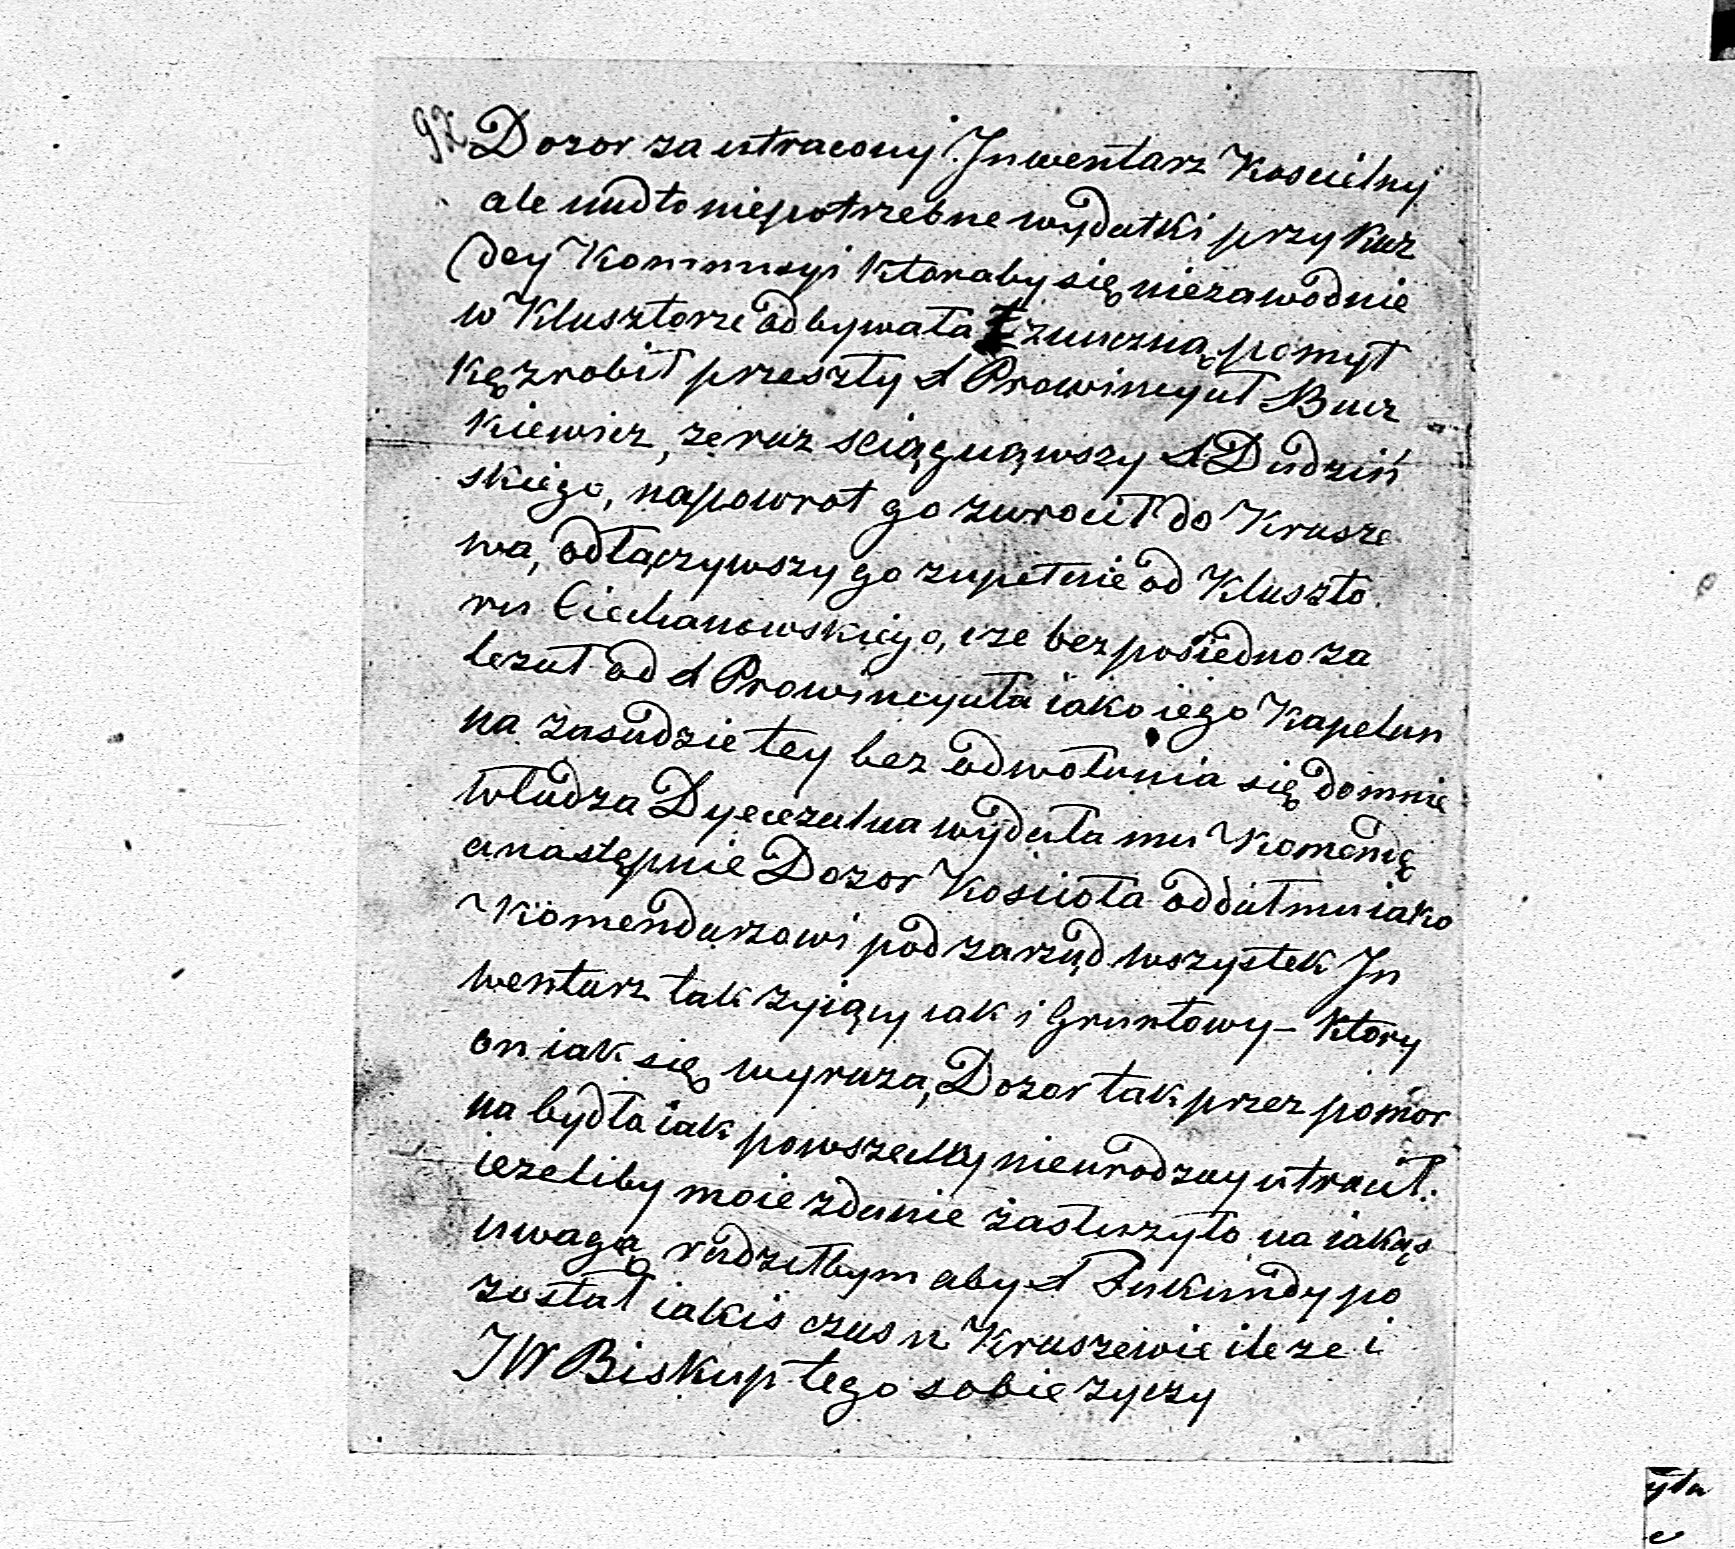 92 Dozor za utracony Inwentarz Koscielny
ale nadto niepotrzebne wydatki przy kaz
dey Kommisyi ktoraby się niezawodnie
w Klasztorze odbywała znaczną pomył
kę zrobił przeszły X Prowincyał Bucz
kiewicz, ze raz sciągnąwszy X Dudziń
skiego, napowrot go zwrocił do Krusze
wa, odłączywszy go zupełnie od Klaszto
ru Ciechanowskiego, ize bezposiedno za
lezał od X Prowincyała iako iego Kapelan
na zasadzie tey bez odwołania się domnie
władza Dyecezalna wydała mu Komendę
anastępnie Dozor Koscioła oddał mu iako
Komendarzowi pod zarząd wszystek In
wentarz tak zyiący iak i Gruntowy – ktory
on iak się wyraza, Dozor tak przez pomor
na bydło iak powszechny nieurodzay utracił.
iezeliby moie zdanie zasłuzyło na iakąs
uwagę radziłbym aby X Jukundy po
został iakiś czas w Kruszewie ile ze i
JW Biskup tego sobie zyczy